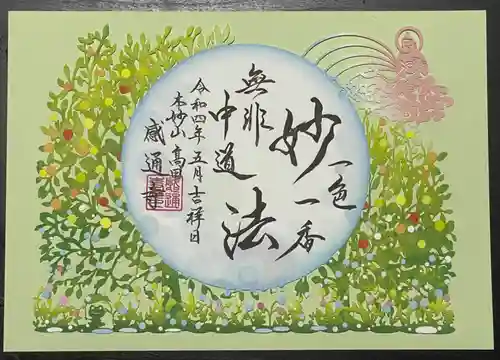 妙法
一色一香
無非中道
令和四年五月吉祥日
本妙山 高円
感通寺